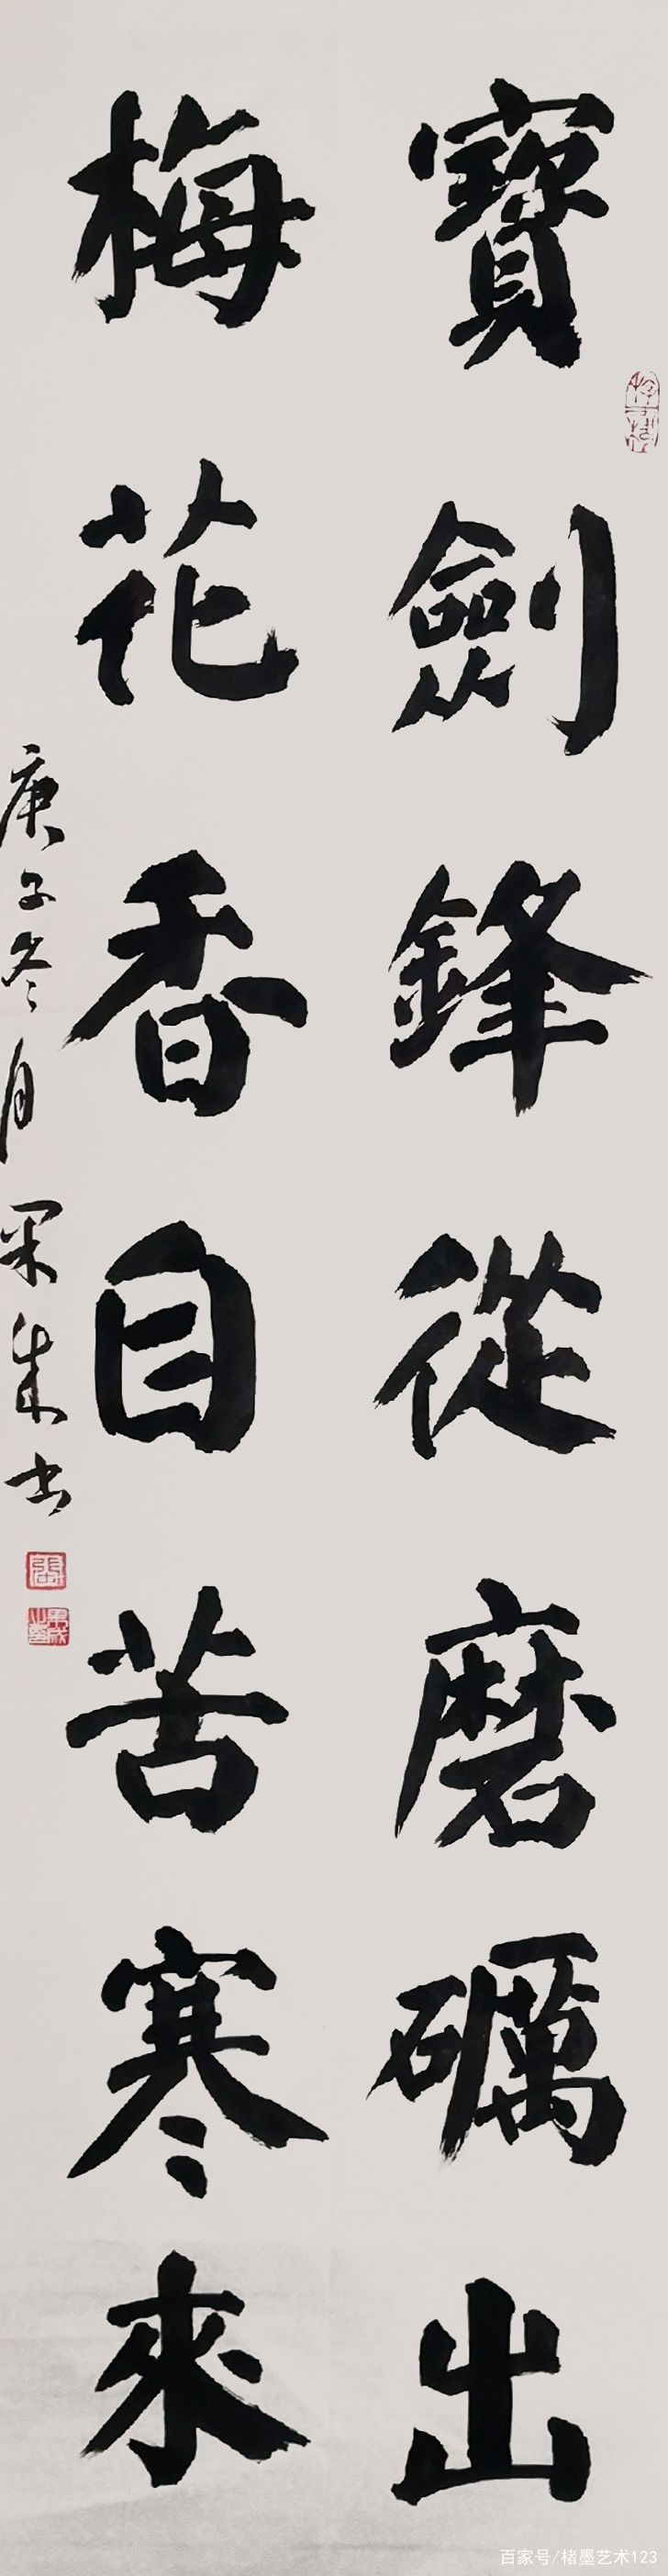 寶劍鋒從磨礪出
梅花香自苦寒來
庚子冬月果成书
百家号/楮墨艺术123